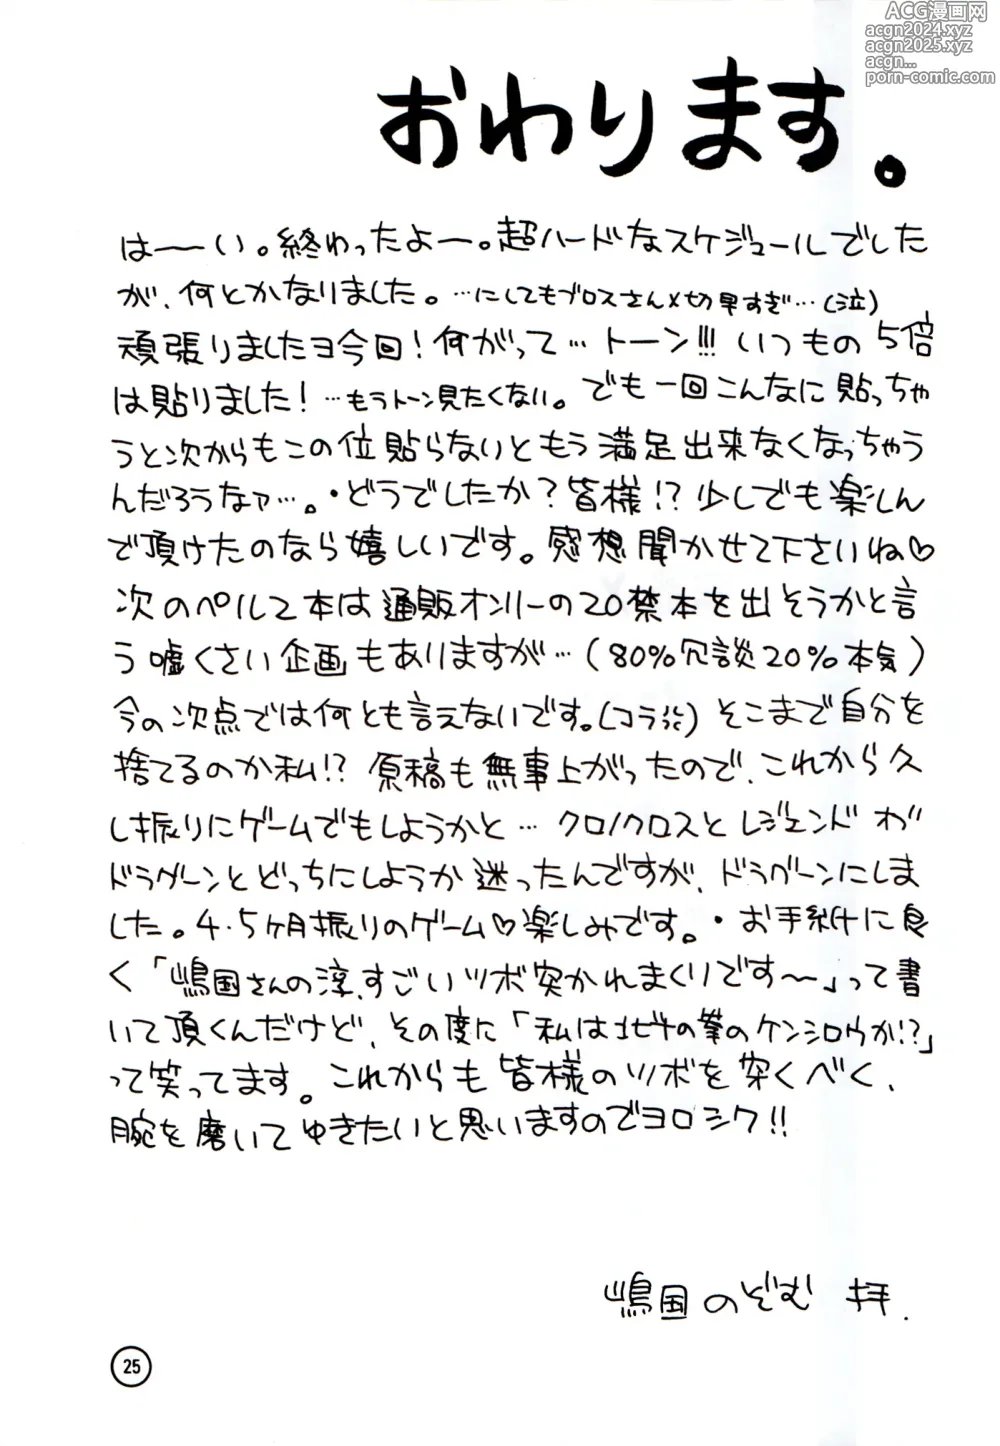 ACG漫画网
acgn2024.xyz
acgn2025.xyz
acgn...
porn-comic.com
おわります。
は――い。終わったよ―。超ハードなスケジュールでした
が、何とかなりました。…にしてもブロスさん〆切早すぎ…(泣)
頑張りましたヨ今回!何がって…トーン!!!いつもの5倍
は貼りました!…もうトーン見たくない。でも一回こんなに貼っちゃ
うと次からもこの位貼らないともう満足出来なくなっちゃう
んだろうなァ…。・どうでしたか?皆様!?少しでも楽しん
で頂けたのなら嬉しいです。感想聞かせて下さいね♡
次のペルソ2本は通販オンリーの20禁本を出そうかと言
う嘘くさい企画もありますが…(80%冗談20%本気)
今の次点では何とも言えないです。(コラ)そこまで自分を
捨てるのか私!?原稿も無事上がったので、これから久
し振りにゲームでもしようかと…クロノクロスとレジェンドオブ
ドラグーンとどっちにしようか迷ったんですが、ドラグーンにしま
した。4・5ヶ月振りのゲーム♡楽しみです。・お手紙に良
く「嶋国さんの淳、すごいツボ突かれまくりです〜」って書
いて頂くんだけど、その度に「私は北斗の拳のケンシロウか!?」
って笑ってます。これからも皆様のツボを突くべく、
腕を磨いてゆきたいと思いますのでヨロシク!!
嶋国のぞむ 拝.
25